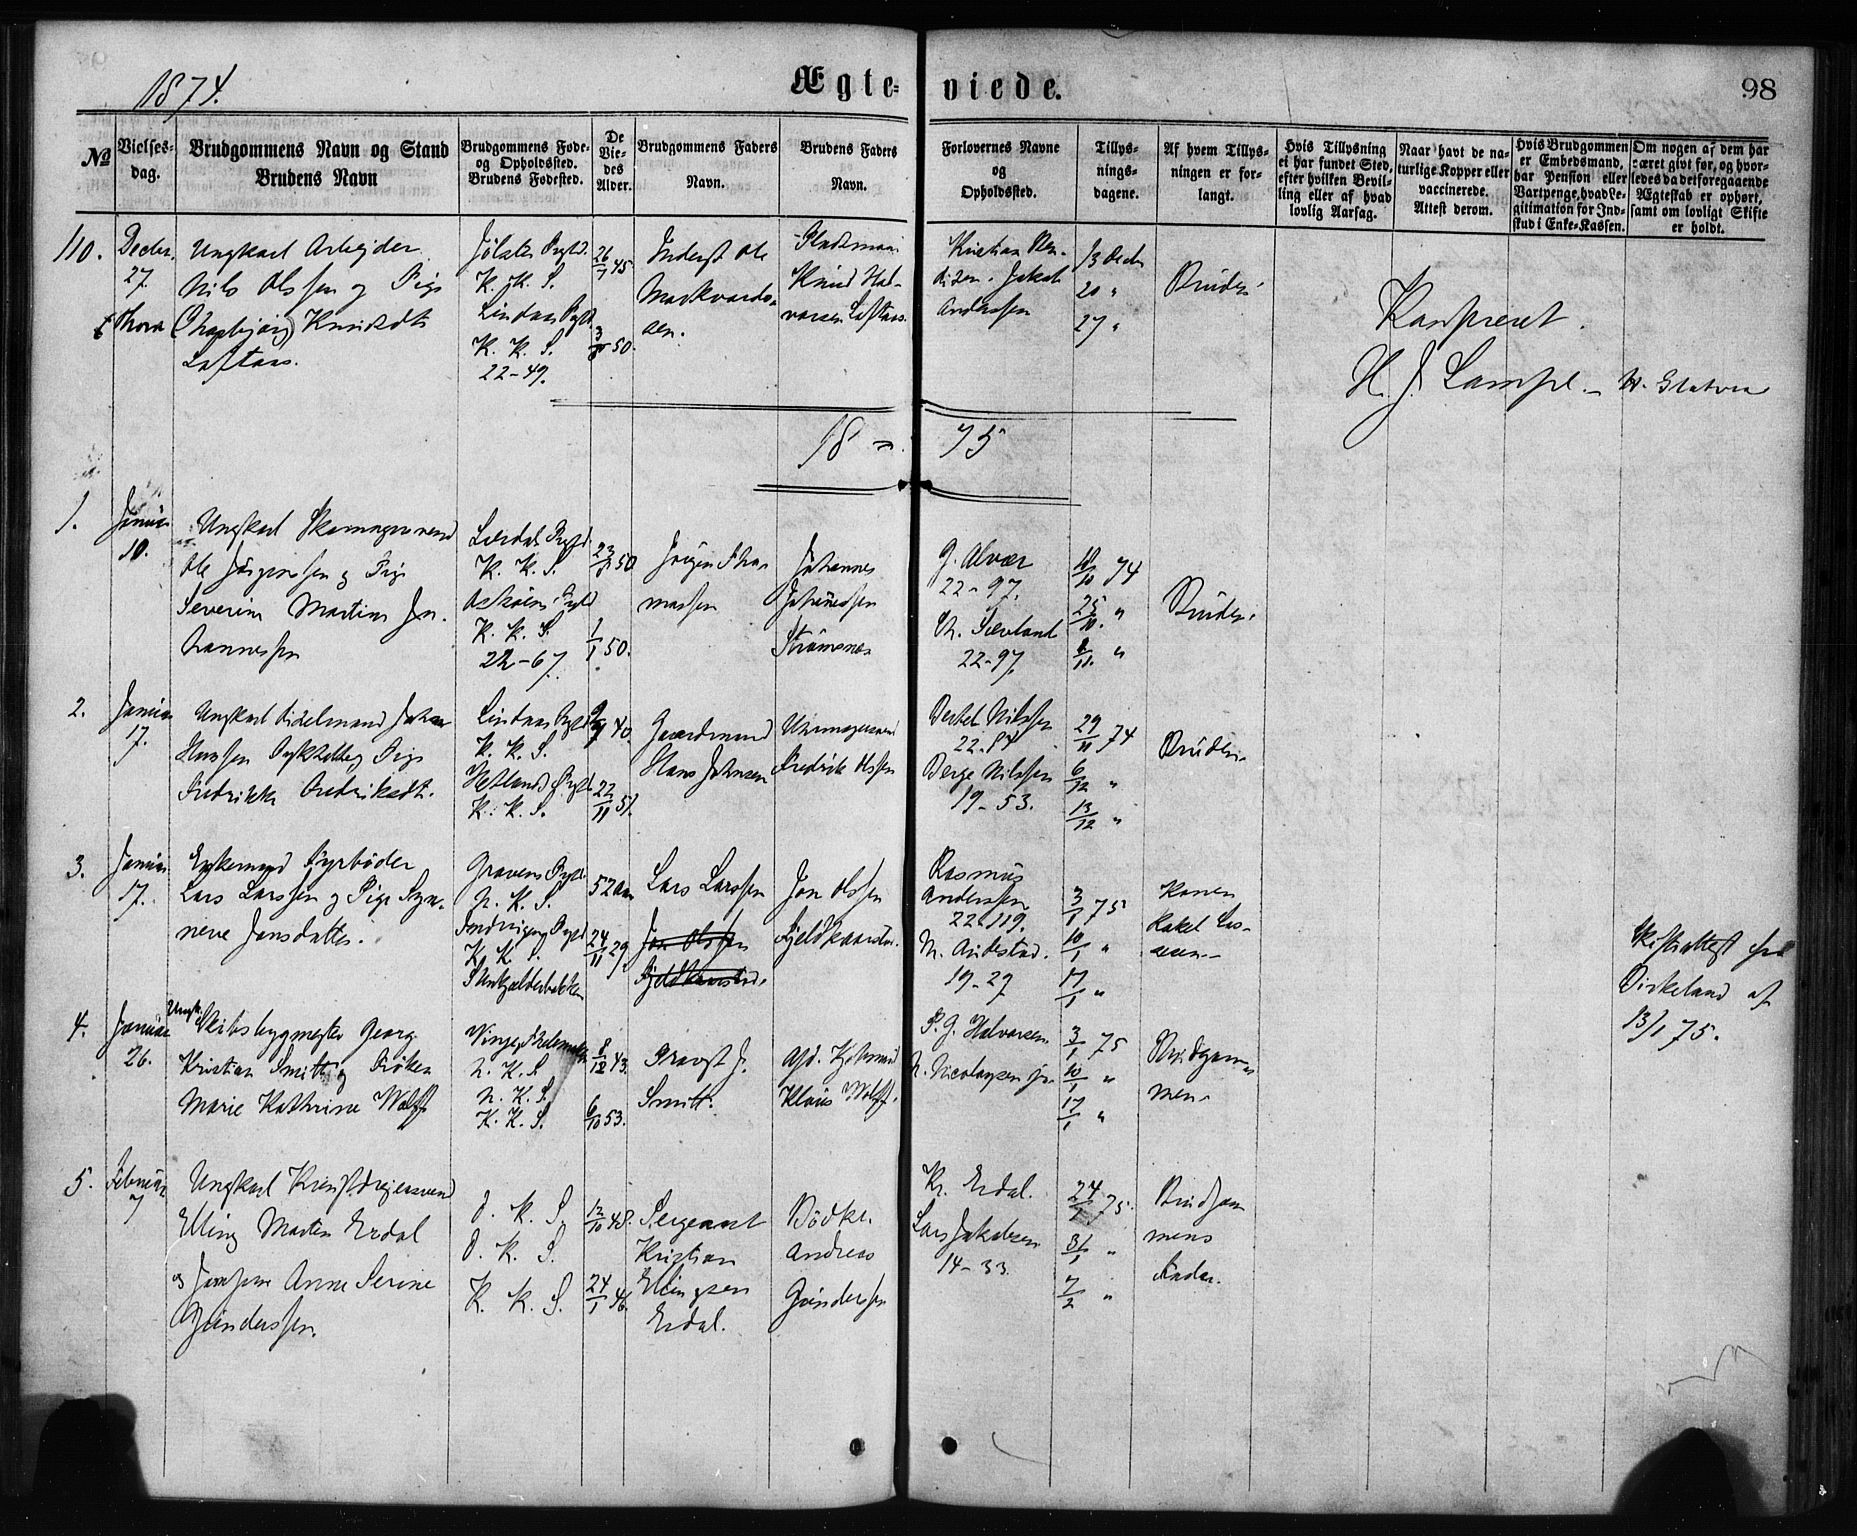 1874.
Ægte-viede.
98
No
Vielses-dag.
Brudgommens Navn og Stand
Brudens Navn
Brudgommens Føde-
og Opholdssted.
Brudens Fødested.
De
Vie-
des
Alder.
Brudgommens Faders
Navn.
Brudens Faders
Navn.
Forlovernes Navne
og
Opholdssted.
Tillys-
nings-
dagene.
Af hvem Tillys-
ningen er for-
langt.
Hvis Tillysning
ei har fundet Sted,
efter hvilken Bevil-
ling eller af hvad
lovlig Aarsag.
Naar havt de na-
turlige Kopper eller
vaccinerede.
Attest derom.
Hvis Brudgommen
er Embedsmand,
har Pension eller
Vartpenge, hvad Le-
gitimation for Ind-
skud i Enke-Kassen.
Om nogen af dem har
været givt før, og hvor-
ledes da det foregaaende
Ægteskab er ophørt,
samt om lovligt Skifte
er holdt.
110.
Decbr.
27.
Ungkarl Arbejder
Nils Olssen og Pige
Knudsdt.
Loftaas.
Jølster
K. K. S.
Lindaas
K. K. S.
22-49.
26/7 45
50.
Inderst Ole
Markvards-
sen.
Pladsmand
Knud Hal-
vorsen Loftaas.
Kristian Ben-
ditzen. Jakob
Anderssen
13 Decbr
20 "
27 "
Bruden.
Konfereret.
H. J. Lampe.
18 - 75
1.
Januar
10.
Ungkarl Skomagersvend
Ole Jørgenssen og Pige
Severine Martine Jo-
hannessen
Lærdal
K. K. S.
Askøen
K. K. S.
22-67.
50
1/1 50.
Jørgen Tho-
massen
Johannes
Johannessen
Strømsnes
G. Alvær
22-97.
Sævland
22-97.
18/10 74
25/10. "
8/11. "
Bruden.
2.
Januar
17.
Ungkarl Johan
Hanssen og Pige
Fredrikke Fredriksdt.
Lindaas
K. K. S.
Hetland
K. K. S.
40.
22/11 51.
Gaardmand
Hans Johnsen
Uhrmagersvend
Fredrik Olssen
Bertel Nilssen
22-84
Berge Nilssen
19-53.
29/11 74
6/12 "
13/12 "
Bruden.
3.
Januar
17.
Enkemand Fyrbøder
Lars Larssen og Pige Syn-
neve Jonsdatter.
Gravens
N. K. S.
K. K. S.
52 Aar
24/11 29.
Lars Larssen
Jon Olssen
Jon Olssen
Rasmus
Anderssen
22-119.
N. Andestad.
19-27
3/1 75
10/1 "
17/1 "
Konen
Rakel Las-
sen
Skifteattest fra
Birkeland af
13/1 75.
4.
Januar
26.
Ungk.
Skibsbygmester Georg
Kristian Smitt og Frøken
Marie Kathrine Wolff
Vinje
N. K. S.
N. K. S.
K. K. S.
8/12 43.
6/10 53.
Provst J.
Smitt.
Afd. Kjøbmand
Klaus Wolff.
P. G. Halvorsen
N. Nicolaysen jr.
3/1 75
10/1 "
17/1 "
Brudgom-
men.
5.
Februar
7
Ungkarl Kunstdrejersvend
Elling Martin Erdal
og Jomfru Anne Serine
Gunderssen.
D. K. S.
D. K. S.
K. K. S.
12/10 48.
24/1 46.
Sergeant
Kristian
Ellingsen
Erdal.
Bødker
Andreas
Gunderssen
Kr. Erdal.
Lars Jakobsen
14-33.
24/1 75.
31/1 "
7/2 "
Brudgom
mens
Fader.